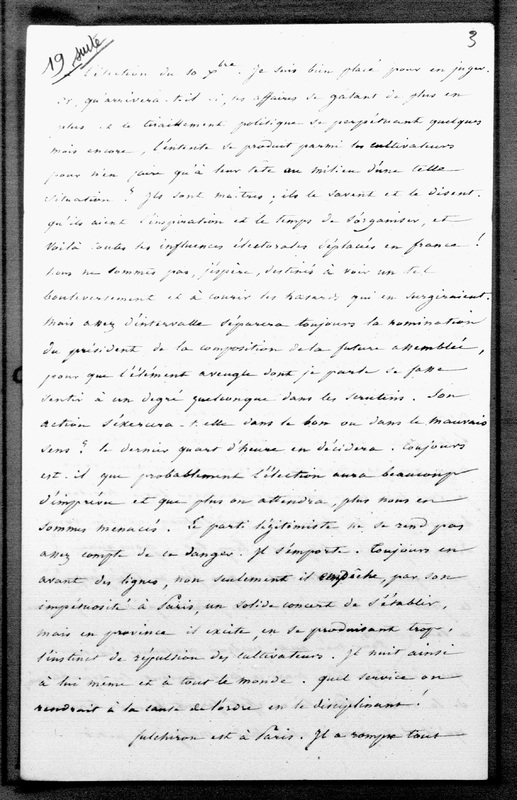 19 suite
3
l'élection du 10 Xbre je suis bien placé pour en juger.
qu'arrivera-t-il si, les affaires se gâtant de plus en
plus et le tiraillement politique se perpétuant quelques
mois encore, l'entente se produit parmi les cultivateurs
pour n'en faire qu'à leur tête au milieu d'une telle
situation ? Ils sont maîtres ; ils le savent et le disent.
qu'ils aient l'inspiration et le temps de s'organiser, et
voilà toutes les influences électorales déplacées en france !
nous ne sommes pas, j'espère, destinés à voir un tel
bouleversement et à courir les hasards qui en surgiraient.
mais assez d'intervalle séparera toujours la nomination
du président de la composition de la future assemblée,
pour que l'élément aveugle dont je parle se fasse
sentir à un degré quelconque dans les scrutins. Son
action s'exercera-t-elle dans le bon ou dans le mauvais
sens ? le dernier quart d'heure en décidera. toujours
est-il que probablement l'élection aura beaucoup
d'imprévu et que plus on attendra, plus nous en
sommes menacés. Le parti légitimiste ne se rend pas
assez compte de ce danger. Il s'emporte. toujours en
avant des lignes, non seulement il empêche, par son
impétuosité à Paris, un solide concert de s'établir,
mais en province il excite, en se produisant trop,
l'instinct de répulsion des cultivateurs. Il nuit ainsi
à lui même et à tout le monde. quel service on
rendrait à la cause de l'ordre en le disciplinant !
fulchiron est à Paris. Il a rompu tout